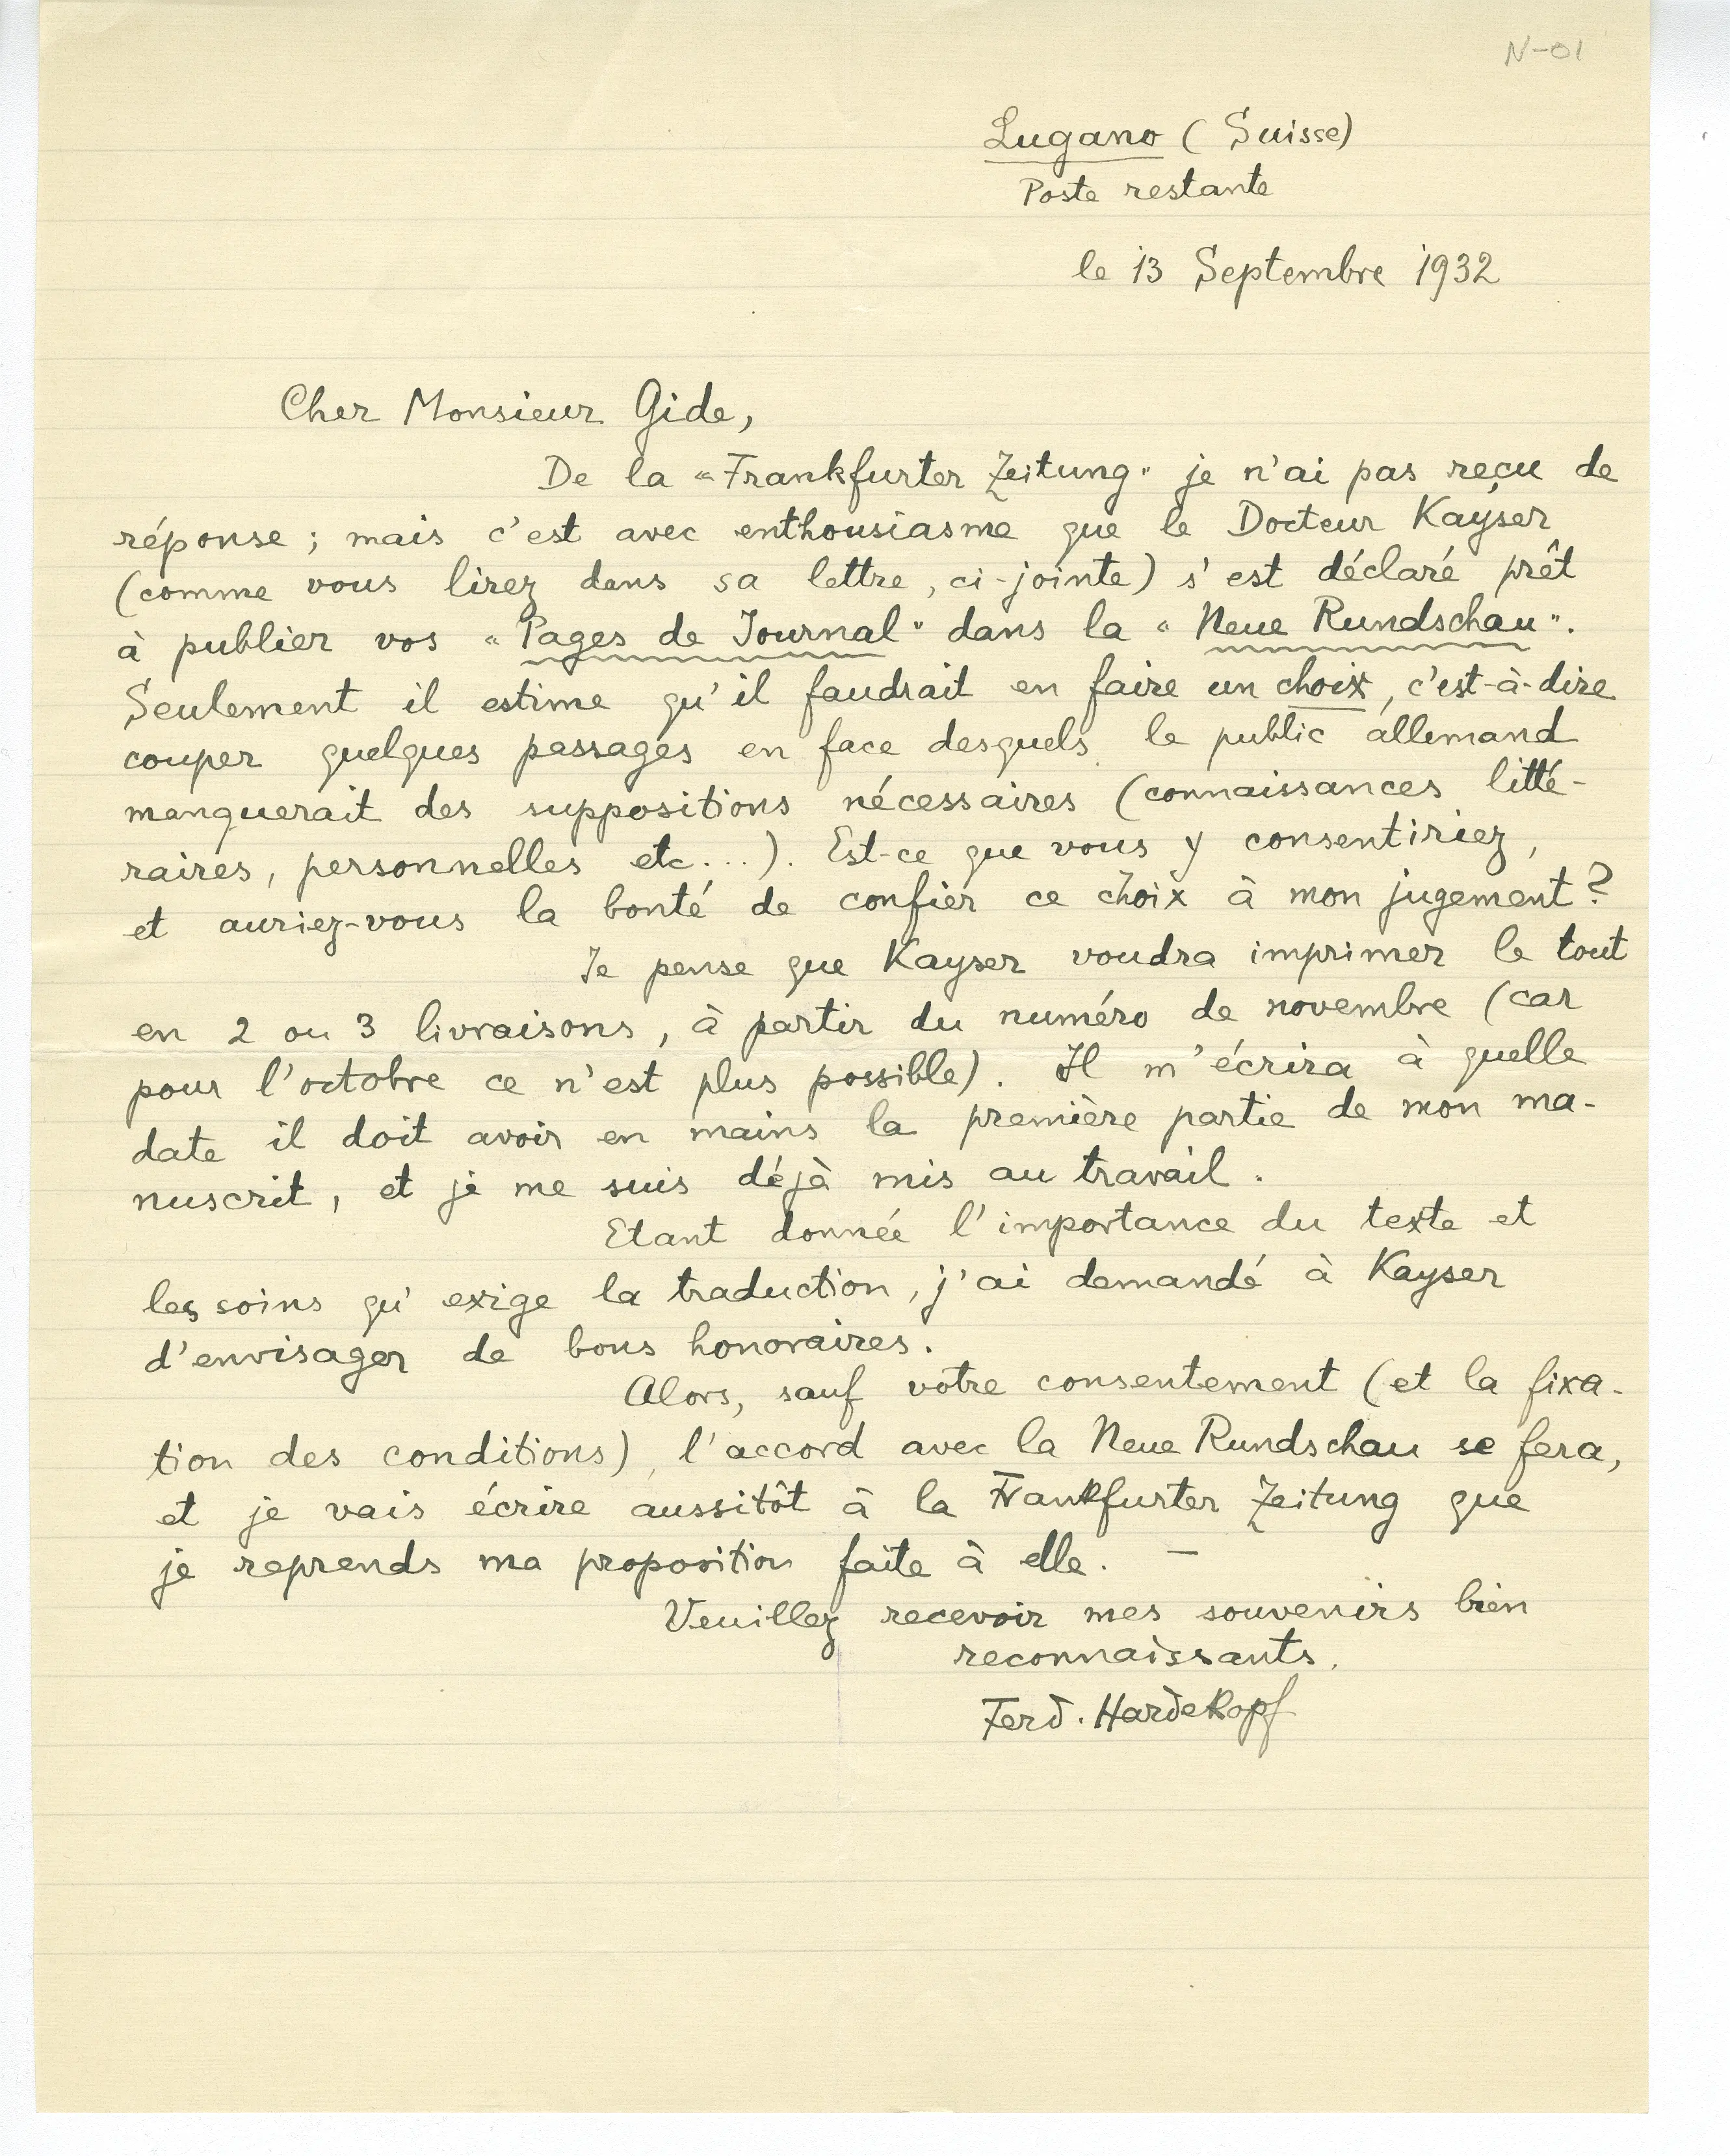 N-01
Lugano (Suisse)
Poste restante
le 13 Septembre 1932
Cher Monsieur Gide,
De la "Frankfurter Zeitung" je n'ai pas reçu de
réponse ; mais c'est avec enthousiasme que le Docteur Kayser
(comme vous lirez dans sa lettre, ci-jointe) s'est déclaré prêt
à publier vos "Pages de Journal" dans la "Neue Rundschau".
Seulement il estime qu'il faudrait en faire un choix, c'est-à-dire
couper quelques passages en face desquels le public allemand
manquerait des suppositions nécessaires (connaissances litté-
raires, personnelles etc...). Est-ce que vous y consentiriez,
et auriez-vous la bonté de confier ce choix à mon jugement?
Je pense que Kayser voudra imprimer le tout
en 2 ou 3 livraisons, à partir du numéro de novembre (car
pour l'octobre ce n'est plus possible). Il m'écrira à quelle
date il doit avoir en mains la première partie de mon ma-
nuscrit, et je me suis déjà mis au travail.
Etant donnée l'importance du texte et
les soins qu'exige la traduction, j'ai demandé à Kayser
d'envisager de bons honoraires.
Alors, sauf votre consentement (et la fixa-
tion des conditions), l'accord avec la Neue Rundschau se fera,
et je vais écrire aussitôt à la Frankfurter Zeitung que
je reprends ma proposition faite à elle. —
Veuillez recevoir mes souvenirs bien
reconnaissants.
Ferd. Hardekopf